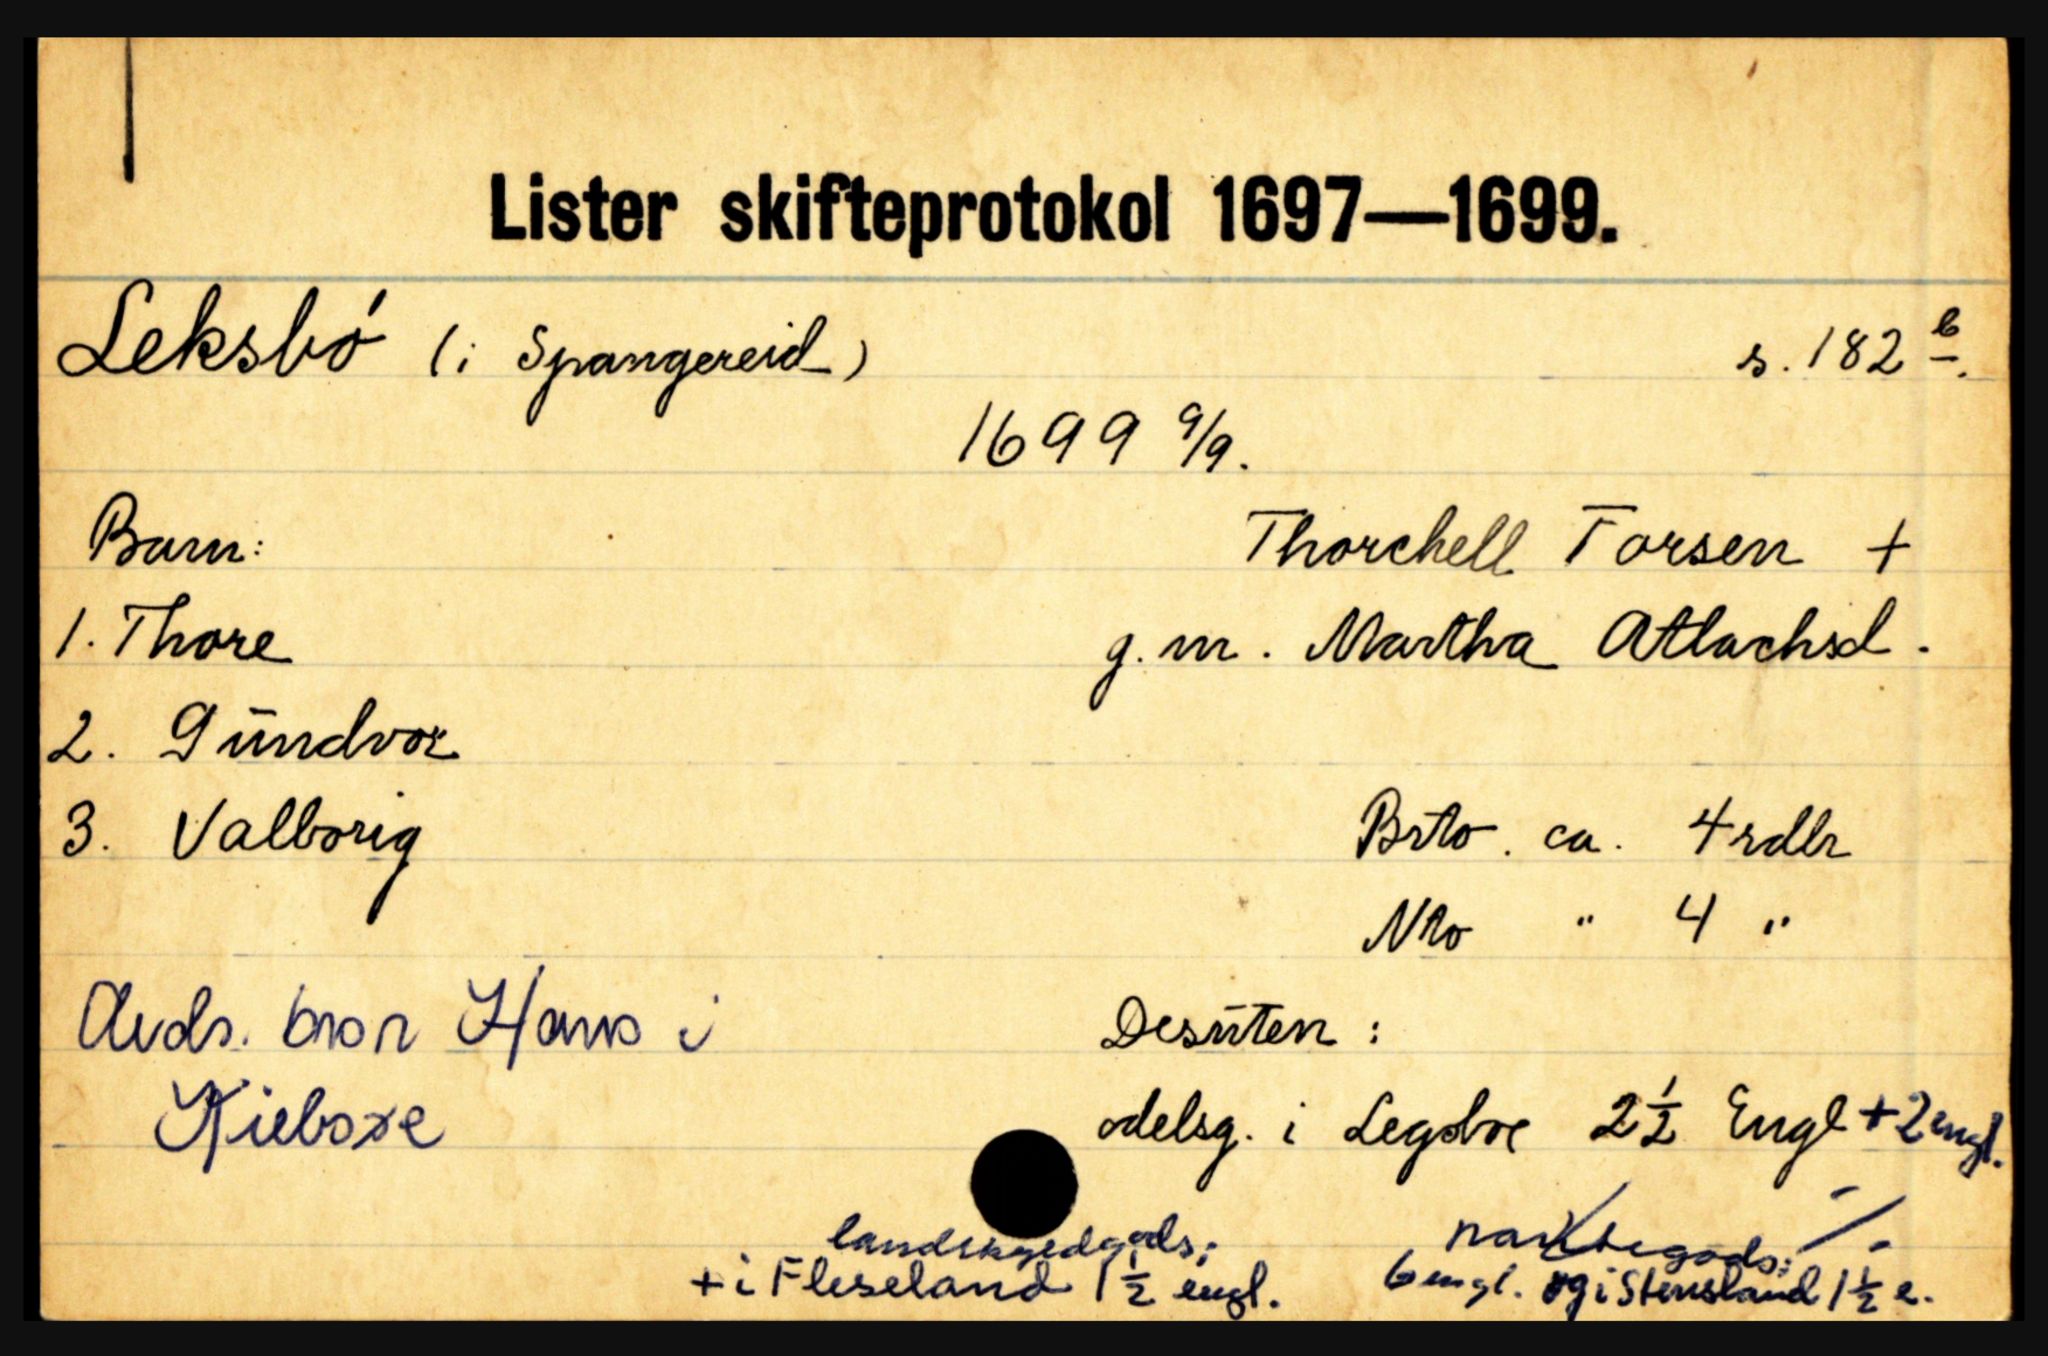 Lister skifteprotokol 1697—1699.
Leksbó (i Spangereid) s. 182 b.
1699 9/9.
Barn: Thorchell Torsen +
1. Thore g. m. Martha Atlachsd.
2. Gūndvor
3. Valborig Brto. ca. 4 rdlr
Nto " 4 "
Avds. bror Hans i Desūten:
Kieboxe odelsg. i Legsboe 2 1/2 Engl + 2 engl.
landskyedgods;
+ i Fleseland 1 1/2 engl. 6 engl. og i Stensland 1 1/2 e.